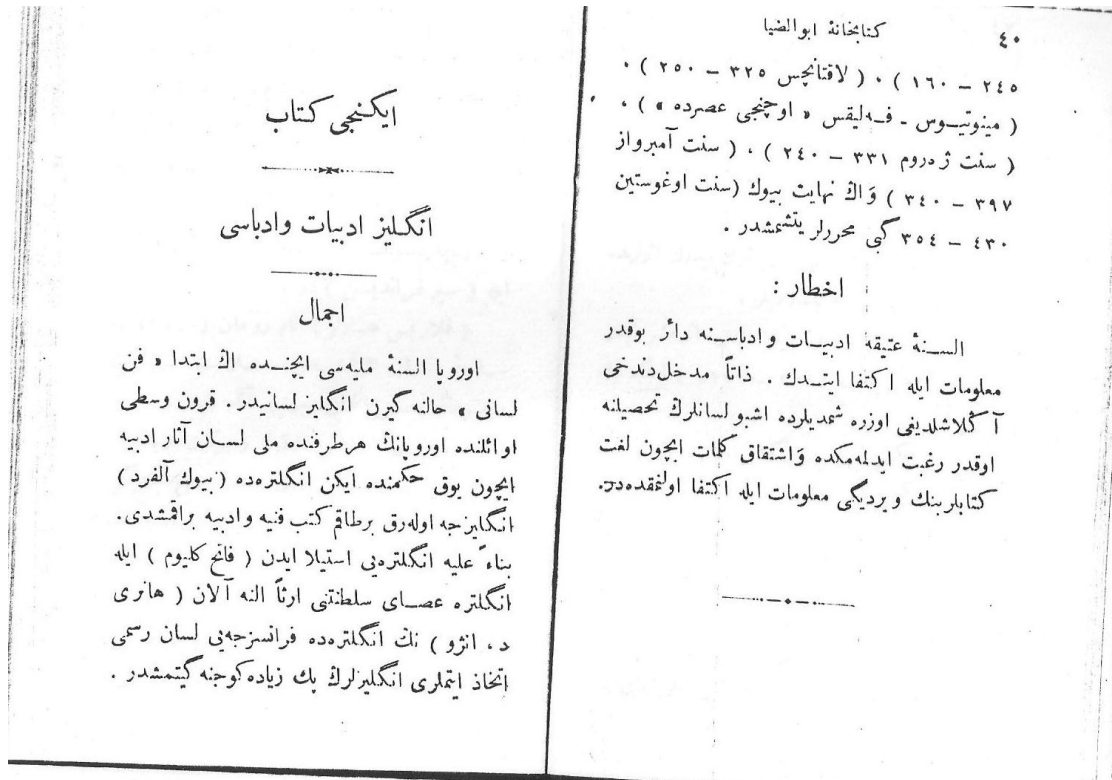 ٤٠
كتابخانهٔ ابوالضيا
٢٤٥ – ١٦٠ ) ، ( لاقتانچس ٣٢٥ – ٢٥٠ ) ،
( مينوتيوس - فه‌ليقس « اوچنجی عصرده » ) ،
( سنت ژه‌روم ٣٣١ – ٢٤٠ ) ، ( سنت آمبرواز
٣٩٧ – ٣٤٠ ) وَاڭ نهايت بيوك (سنت اوغوستين
٤٣٠ – ٣٥٤ گبی محررلر يتشمشدر .
اخطار :
السنهٔ عتيقه ادبيات وادباسنه دائر بوقدر
معلومات ايله اكتفا ايتدك . ذاتاً مدخل‌دندخی
آڭلاشلديغی اوزره شمديلرده اشبو لسانلرڭ تحصيلنه
اوقدر رغبت ايدلمه‌مكده وَاشتقاق كلمات ايچون لغت
كتابلرينك ويرديگی معلومات ايله اكتفا اولنمقده‌در.
ايكنجی كتاب
انگليز ادبيات وادباسی
اجمال
اوروپا السنهٔ مليه‌سی ايچنده اڭ ابتدا « فن
لسانی » حالنه گيرن انگليز لسانيدر. قرون وسطی
اوائلنده اوروپانڭ هرطرفنده ملی لسان آثار ادبيه
ايچون يوق حكمنده ايكن انگلتره‌ده (بيوك آلفرد )
انگليزجه اوله‌رق برطاقم كتب فنيه وادبيه براقمشدی.
بناءً عليه انگلتره‌يی استيلا ايدن ( فاتح كليوم ) ايله
انگلتره عصای سلطنتنی ارثاً النه آلان ( هانری
د ، انژو ) نڭ انگلتره‌ده فرانسزجه‌يی لسان رسمی
اتخاذ ايتملری انگليزلرڭ پك زياده كوجنه گيتمشدر .